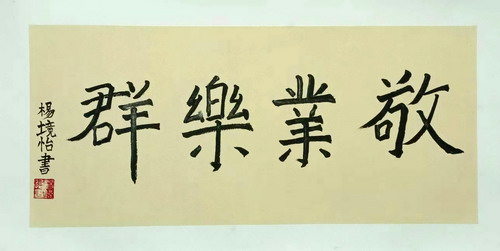 敬業樂群
楊境怡書